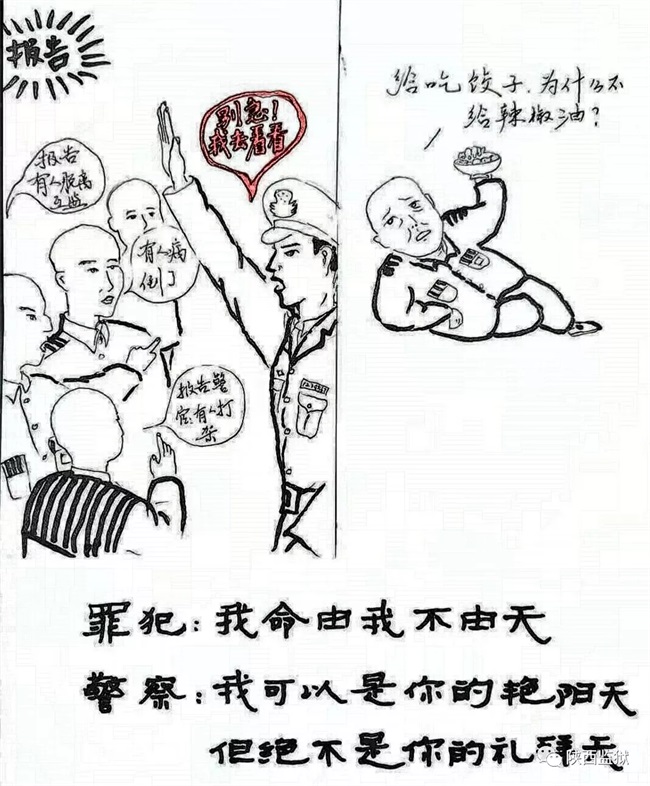 报告
别急!
我去看看
报告
有人脱离
互监
有人病
倒了
报告警
官,有人打
架
给吃饺子,为什么不
给辣椒油?
罪犯:我命由我不由天
警察:我可以是你的艳阳天
但绝不是你的礼拜天
陕西监狱